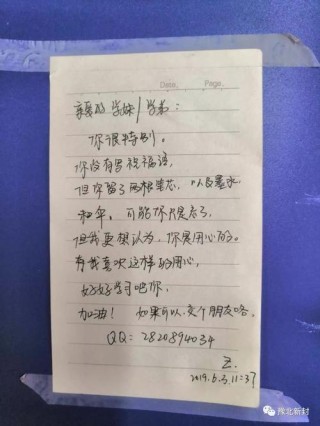 Date. Page.
亲爱的学妹/学弟:
你很特别。
你没有写祝福语,
但你留了两根笔芯,以及墨水
和伞。可能你只是忘了,
但我更想认为,你是用心的。
而我喜欢这样的用心,
好好学习吧你,
加油!如果可以,交个朋友咯。
QQ:2820894034
2019.6.3.11:37
豫北新封